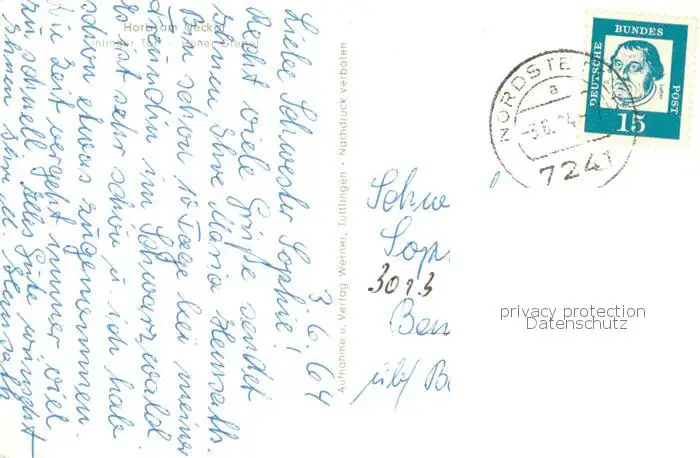 Horb am Neckar
3.6.64
Liebe Schwester Sophie!
Recht viele Grüße sendet
Ihnen Ihre Maria
Bin schon 10 Tage bei meiner
Freundin im Schwarzwald
es ist sehr schön u. ich habe
schon etwas zugenommen.
Die Zeit vergeht immer viel
zu schnell. Alles Gute wünscht
Ihnen Ihre M.
Aufnahme u. Verlag Werner, Tuttlingen · Nachdruck verboten
DEUTSCHE BUNDES POST
Luther
15
NORDSTE
a
-3.6.64
7241
Schwe
Soph
3013
Ben
privacy protection
Datenschutz